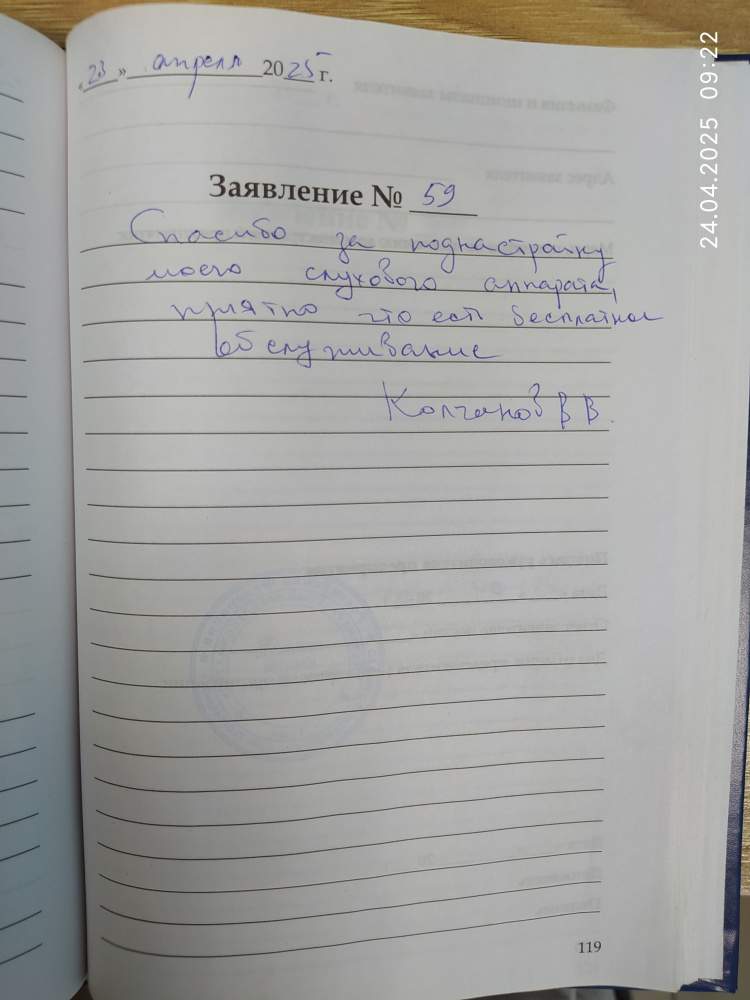 «23» апреля 2025 г.
Заявление № 59
Спасибо за поднастройку
моего слухового аппарата,
приятно что есть бесплатное
обслуживание
Колчанов В В.
119
24.04.2025 09:22